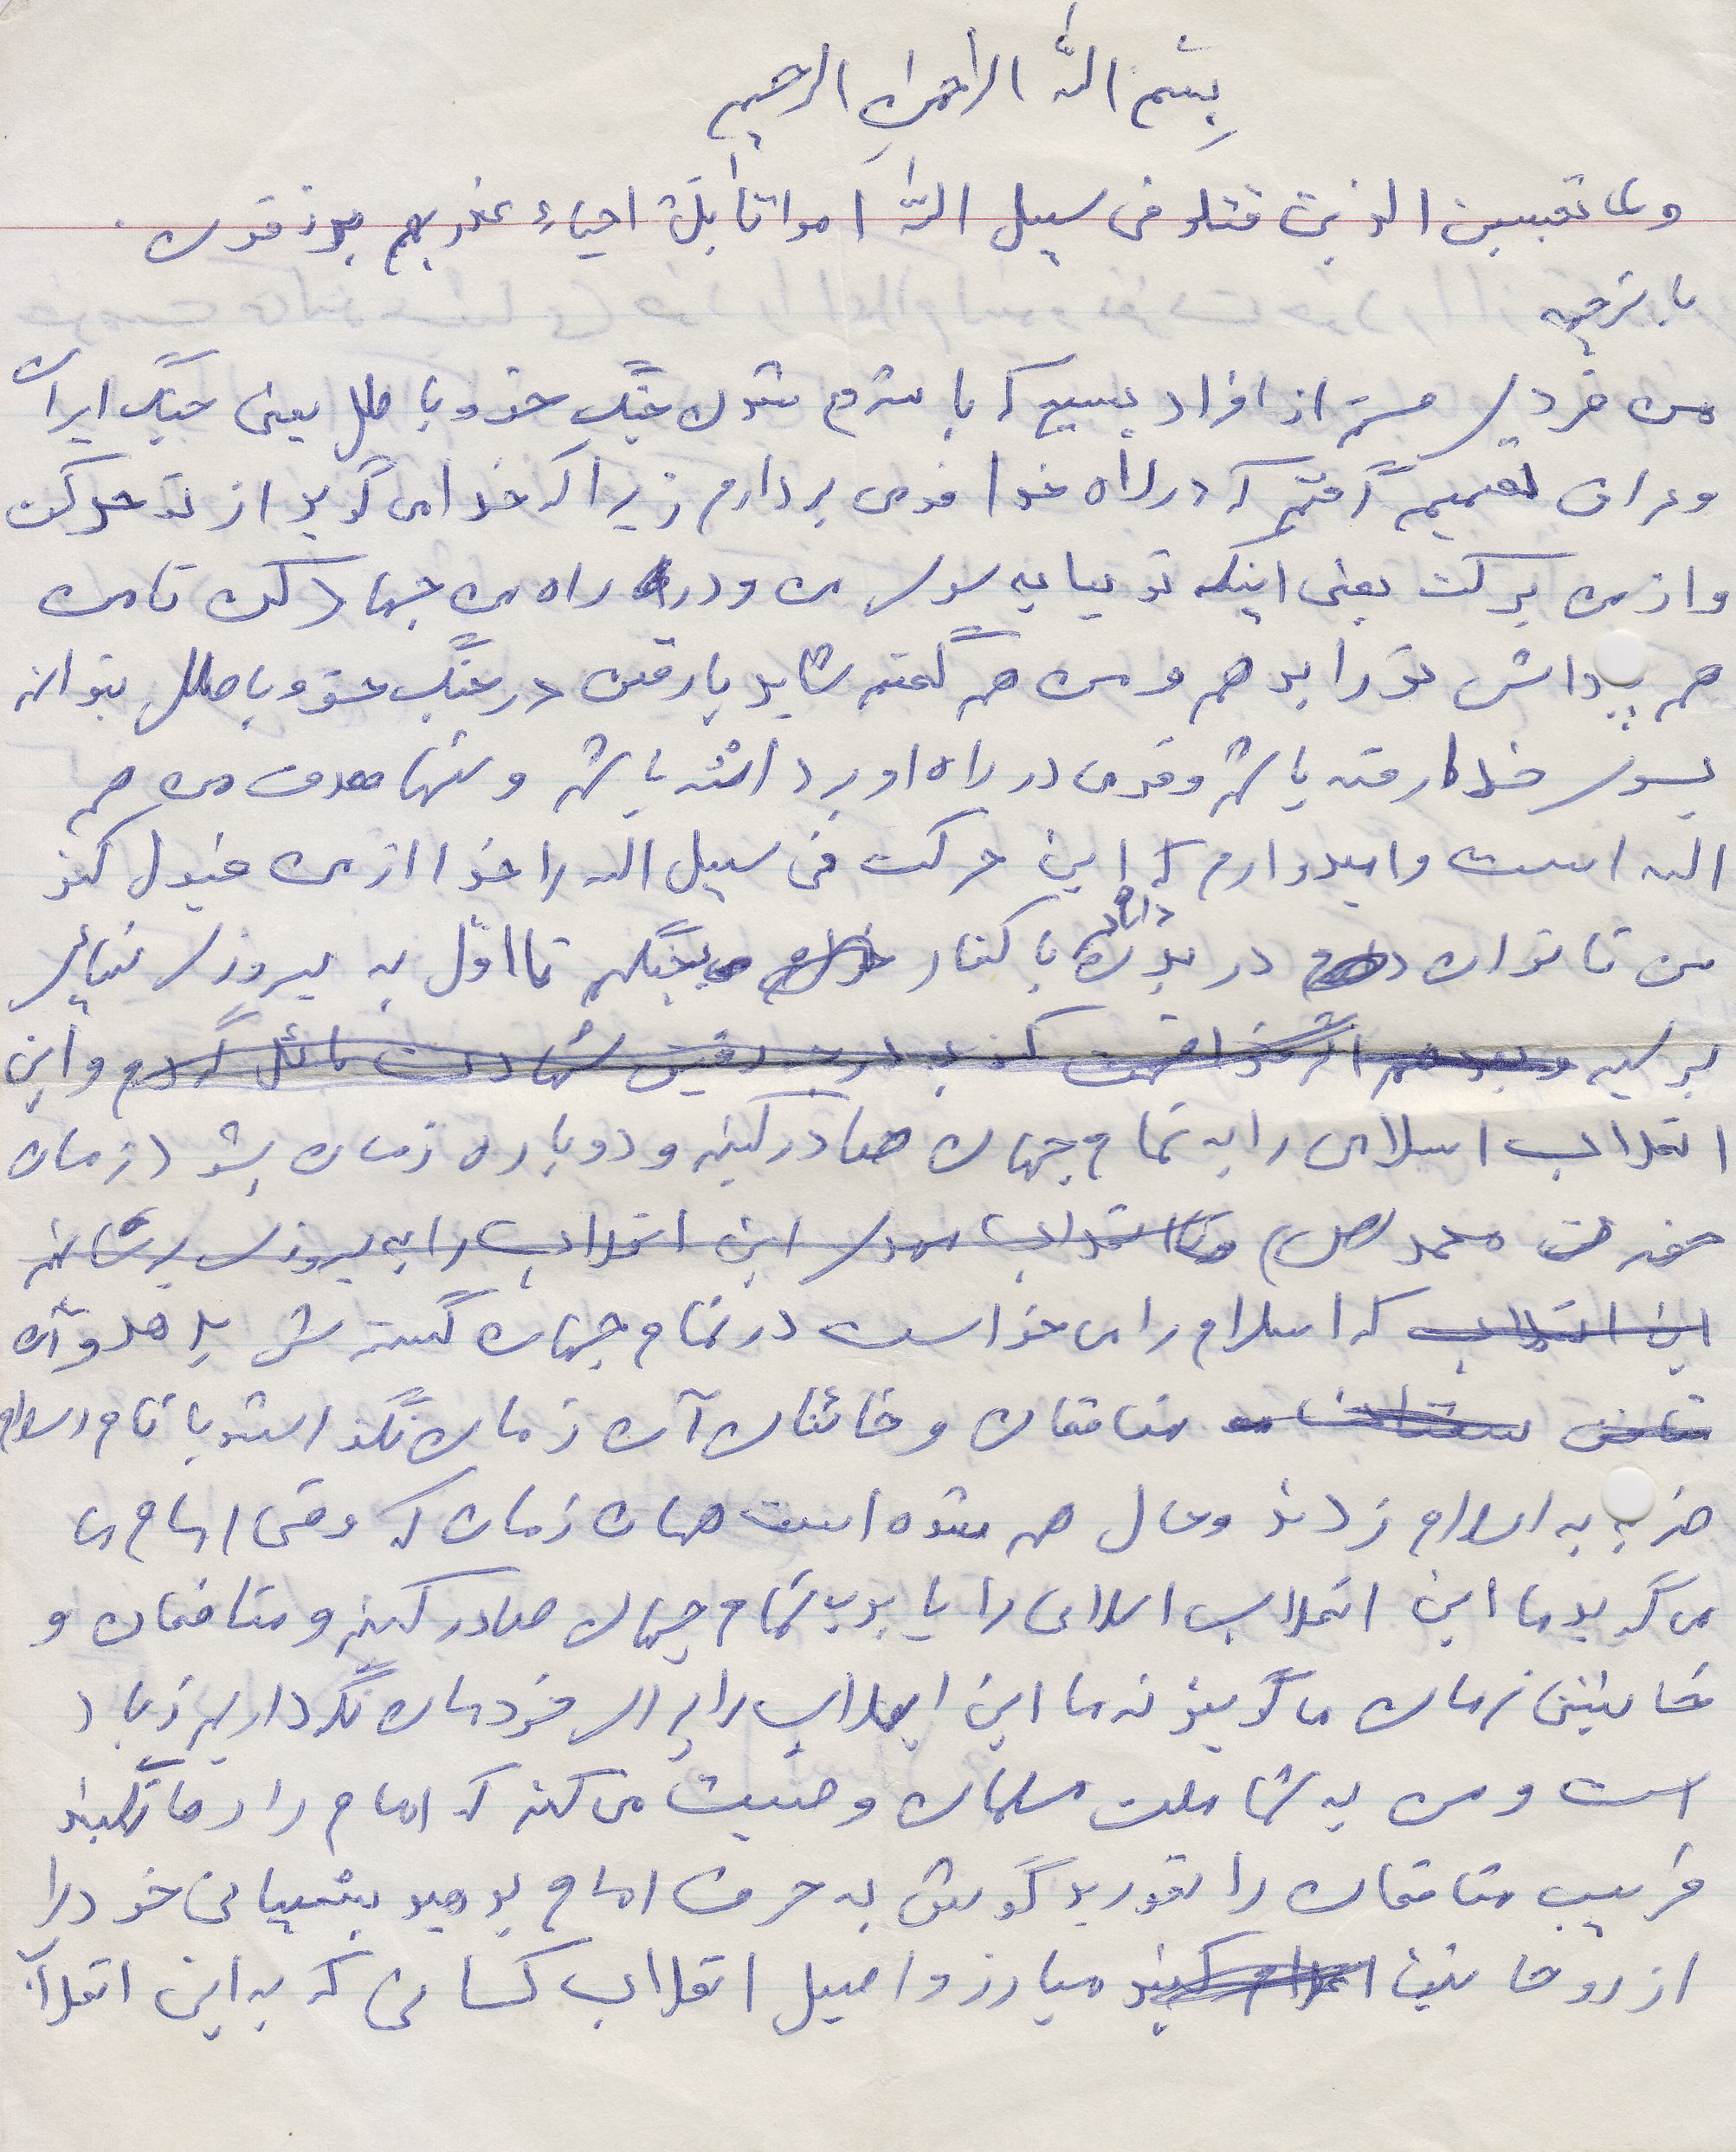 بسْم اللّه الرّاحمنِ الرحیم
ولا تحسبین الذین قتلو فی سبیل اللّه امواتا بلْ احیاء عند بهم یرزقون.
با ترجمه
من فردی هستم از افراد بسیج که با شروع شدن جنگ حق و باطل یعنی جنگ ایران
و عراق تصمیم گرفتم که در راه خدا قدمی بردارم زیرا که خدا می گوید از تو حرکت
و از من برکت یعنی اینکه تو بیا به سوی من و در راه من جهاد کن تا من
هم پاداش تو را بدهم و من هم گفتم شاید با رفتن در جنگ حق و باطل بتوانم
بسوی خدا رفته باشم و قدمی در راه او برداشته باشم و تنها هدف من هم
الله است و امیدوارم که این حرکت فی سبیل الله را خدا از من قبول کند
من تا توان در بدن دارم با کفار بجنگم تا اوّل به پیروزی نهایی
برسیم و بعد هم اگر خدا قسمت کند به درجه رفیق شهادت نائل گردم و این
انقلاب اسلامی را به تمام جهان صادر کنیم و دوباره زمان بشود زمان
حضرت محمد (ص) انقلاب مهدی این انقلاب را به پیروزی برسانیم
این انقلاب که اسلام را می خواست در تمام جهان گسترش بدهد و آن
منافقان و خائنان آن زمان نگذاشتد با نام اسلام
ضربه به اسلام زدند و حال هم شده است همان زمان که وقتی امام ما
می گوید ما این انقلاب اسلامی را باید به تمام جهان صادر کنیم و منافقان و
خائنین زمان ما گویند نه ما این انقلاب را برای خودمان نگه داریم زیاد
است و من به شما ملت مسلمان وصیت می کنم که امام را رها نکنید
فریب منافقان را نخورید گوش به حرف امام بدهید پشتیبانی خود را
از روحانیت اعلام کنید مبارز و اصیل انقلاب کسانی که به این انقلاب